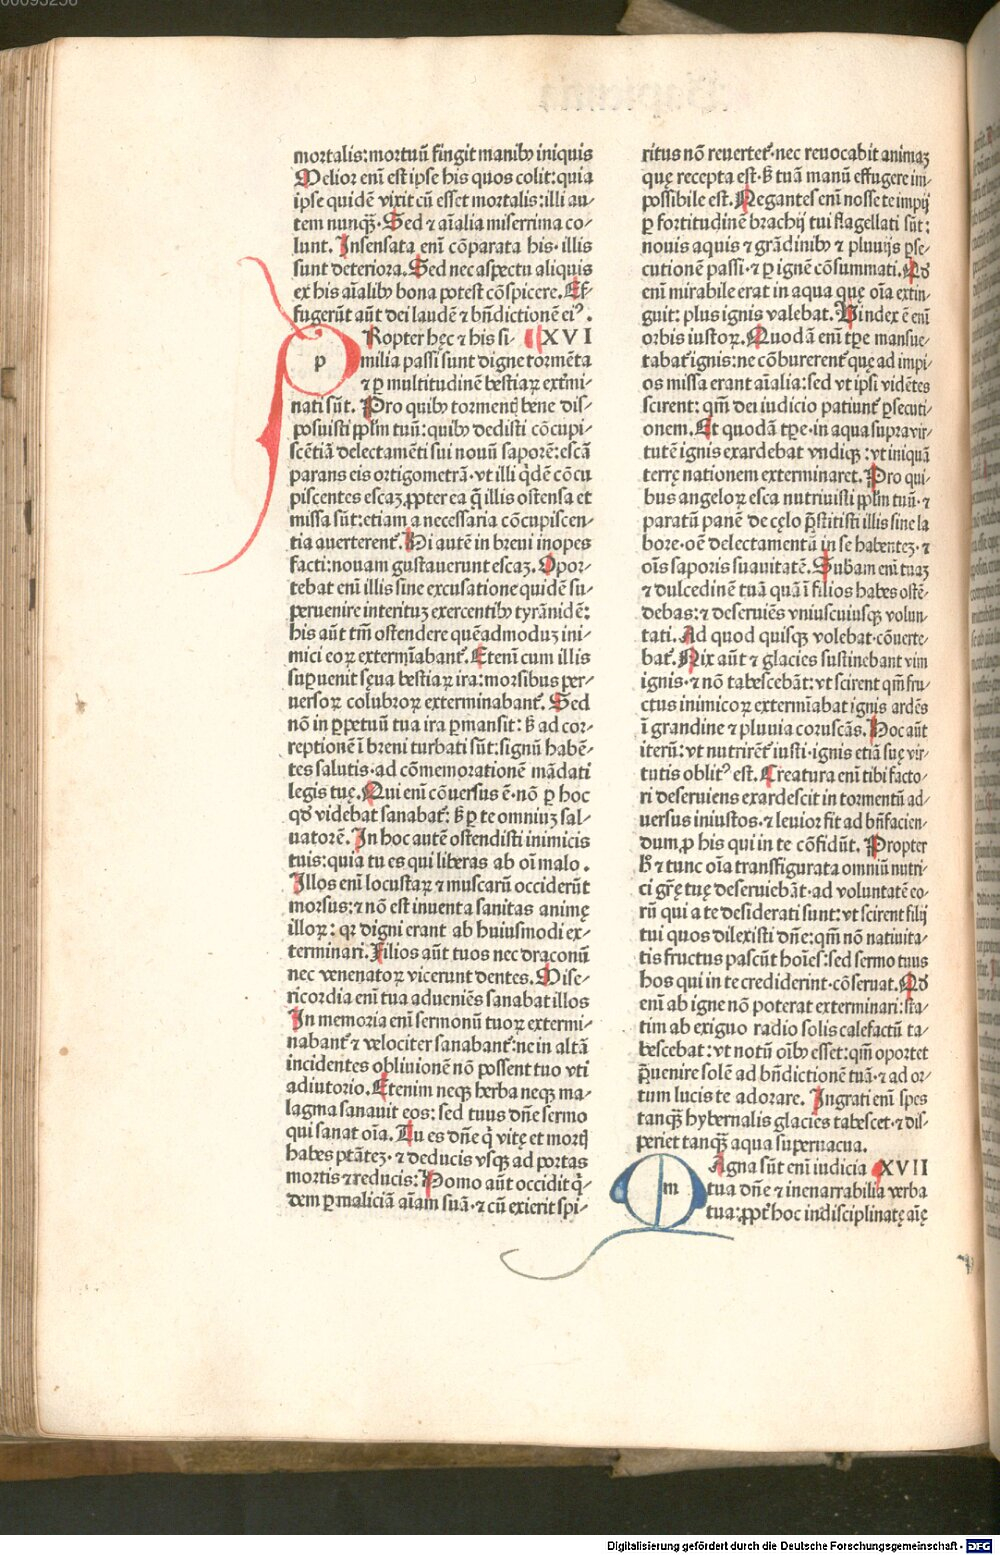 mortalis:mortuũ fingit manibꝰ iniquis
Melior enĩ est ipse his quos colit:quia
ipse quidẽ vixit cũ esset mortalis:illi au⸗
tem nunqꝫ̃. Sed ⁊ aĩalia miserrima co⸗
lunt. Insensata enĩ cõparata his· illis
sunt deteriora. Sed nec aspectu aliquis
ex his aĩalibꝰ bona potest cõspicere. Ef⸗
fugerũt aũt dei laudẽ ⁊ bñdictionẽ eiꝰ.
Ropter hęc ⁊ his si⸗ XVI
p milia passi sunt digne tormẽta
⁊ ꝑ multitudinẽ bestiaꝝ extmĩ⸗
nati sũt. Pro quibꝰ tormentꝭ bene dis⸗
posuisti pplm̃ tuũ:quibꝰ dedisti cõcupi⸗
scẽtiã delectamẽti sui nouũ saporẽ:escã
parans eis ortigometrã·vt illi q̃dẽ cõcu
piscentes escaꝫ ꝓpter ea q̃ illis ostensa et
missa sũt:etiam a necessaria cõcupiscen⸗
tia auerterent᷑. Hi autẽ in breui inopes
facti:nouam gustauerunt escaꝫ. Opor⸗
tebat enĩ illis sine excusatione quidẽ su⸗
peruenire interituꝫ exercentibꝰ tyrãnidẽ:
his aũt tm̃ ostendere quẽadmoduꝫ ini⸗
mici eoꝝ extermĩabant᷑. Etenĩ cum illis
suꝑuenit sęua bestiaꝝ ira:morsibus per⸗
uersoꝝ colubroꝝ exterminabant᷑. Sed
nõ in ꝑpetuũ tua ira ꝑmansit: sꝫ ad cor⸗
reptionẽ ĩ breui turbati sũt:signũ habẽ⸗
tes salutis·ad cõmemorationẽ mãdati
legis tuę. Qui enĩ cõuersus ẽ·nõ ꝑ hoc
qđ videbat sanabat᷑: sꝫ ꝑ te omniuꝫ sal⸗
uatorẽ. In hoc autẽ ostendisti inimicis
tuis:quia tu es qui liberas ab oĩ malo.
Illos enĩ locustaꝝ ⁊ muscarũ occiderũt
morsus:⁊ nõ est inuenta sanitas animę
illoꝝ: qꝛ digni erant ab huiusmodi ex⸗
terminari. Filios aũt tuos nec draconũ
nec venenatoꝝ vicerunt dentes. Mise⸗
ricordia enĩ tua adueniẽs sanabat illos
In memoria enĩ sermonũ tuoꝝ extermi⸗
nabant᷑ ⁊ velociter sanabant᷑:ne in altã
incidentes obliuionẽ nõ possent tuo vti
adiutorio. Etenim neqꝫ herba neqꝫ ma⸗
lagma sanauit eos: sed tuus dñe sermo
qui sanat oĩa. Tu es dñe q̃ vitę et mortꝭ
habes ptãteꝫ· ⁊ deducis vsqꝫ ad portas
mortis ⁊ reducis: Homo aũt occidit q̃⸗
dem ꝑ maliciã aĩam suã·⁊ cũ exierit spi⸗
ritus nõ reuertet᷑·nec reuocabit animaꝫ
quę recepta est· sꝫ tuã manũ effugere im⸗
possibile est. Negantes enĩ nosse te impij
ꝑ fortitudinẽ brachij tui flagellati sũt:
nouis aquis ⁊ grãdinibꝰ ⁊ pluuijs ꝑse⸗
cutionẽ passi·⁊ ꝑ ignẽ cõsummati. Qđ
enĩ mirabile erat in aqua quę oĩa extin⸗
guit: plus ignis valebat. Vindex ẽ enĩ
orbis iustoꝝ. Quodã enĩ tꝑe mansue⸗
tabat᷑ ignis:ne cõburerent᷑ quę ad impi⸗
os missa erant aĩalia:sed vt ipsi vidẽtes
scirent: qm̃ dei iudicio patiunt᷑ ꝑsecuti⸗
onem. Et quodã tꝑe·in aqua supra vir⸗
tutẽ ignis exardebat vndiqꝫ:vt iniquã
terrę nationem exterminaret. Pro qui⸗
bus angeloꝝ esca nutriuisti pplm̃ tuũ·⁊
paratũ panẽ de cęlo p̃stitisti illis sine la
bore·oẽ delectamentũ in se habenteꝫ·⁊
oĩs saporis suauitatẽ. Subãm enĩ tuaꝫ
⁊ dulcedinẽ tuã quã ĩ filios habes ostẽ⸗
debas:⁊ deseruiẽs vniuscuiusqꝫ volun⸗
tati. Ad quod quisqꝫ volebat·cõuerte⸗
bat᷑. Nix aũt ⁊ glacies sustinebant vim
ignis·⁊ nõ tabescebãt:vt scirent qm̃ fru⸗
ctus inimicoꝝ extermĩabat ignis ardẽs
ĩ grandine ⁊ pluuia coruscãs. Hoc aũt
iterũ: vt nutrirẽt᷑ iusti·ignis etiã suę vir⸗
tutis oblitꝰ est. Creatura enĩ tibi facto⸗
ri deseruiens exardescit in tormentũ ad⸗
uersus iniustos·⁊ leuior fit ad bñfacien⸗
dum ꝓ his qui in te cõfidũt. Propter
hꝭ ⁊ tunc oĩa transfigurata omniũ nutri⸗
ci gr̃ę tuę deseruiebãt·ad voluntatẽ eo⸗
rũ qui a te desiderati sunt:vt scirent filij
tui quos dilexisti dñe:qm̃ nõ natiuita⸗
tis fructus pascũt hoĩes:sed sermo tuus
hos qui in te crediderint·cõseruat. Qđ
enĩ ab igne nõ poterat exterminari:sta⸗
tim ab exiguo radio solis calefactũ ta⸗
bescebat:vt notũ oĩbꝰ esset:qm̃ oportet
p̃uenire solẽ ad bñdictionẽ tuã·⁊ ad or⸗
tum lucis te adorare. Ingrati enĩ spes
tanqꝫ̃ hybernalis glacies tabescet·⁊ dis⸗
periet tanqꝫ̃ aqua superuacua.
Agna sũt enĩ iudicia XVII
m tua dñe ⁊ inenarrabilia verba
tua:ꝓpt᷑ hoc indisciplinatę aĩę
Digitalisierung gefördert durch die Deutsche Forschungsgemeinschaft · DFG